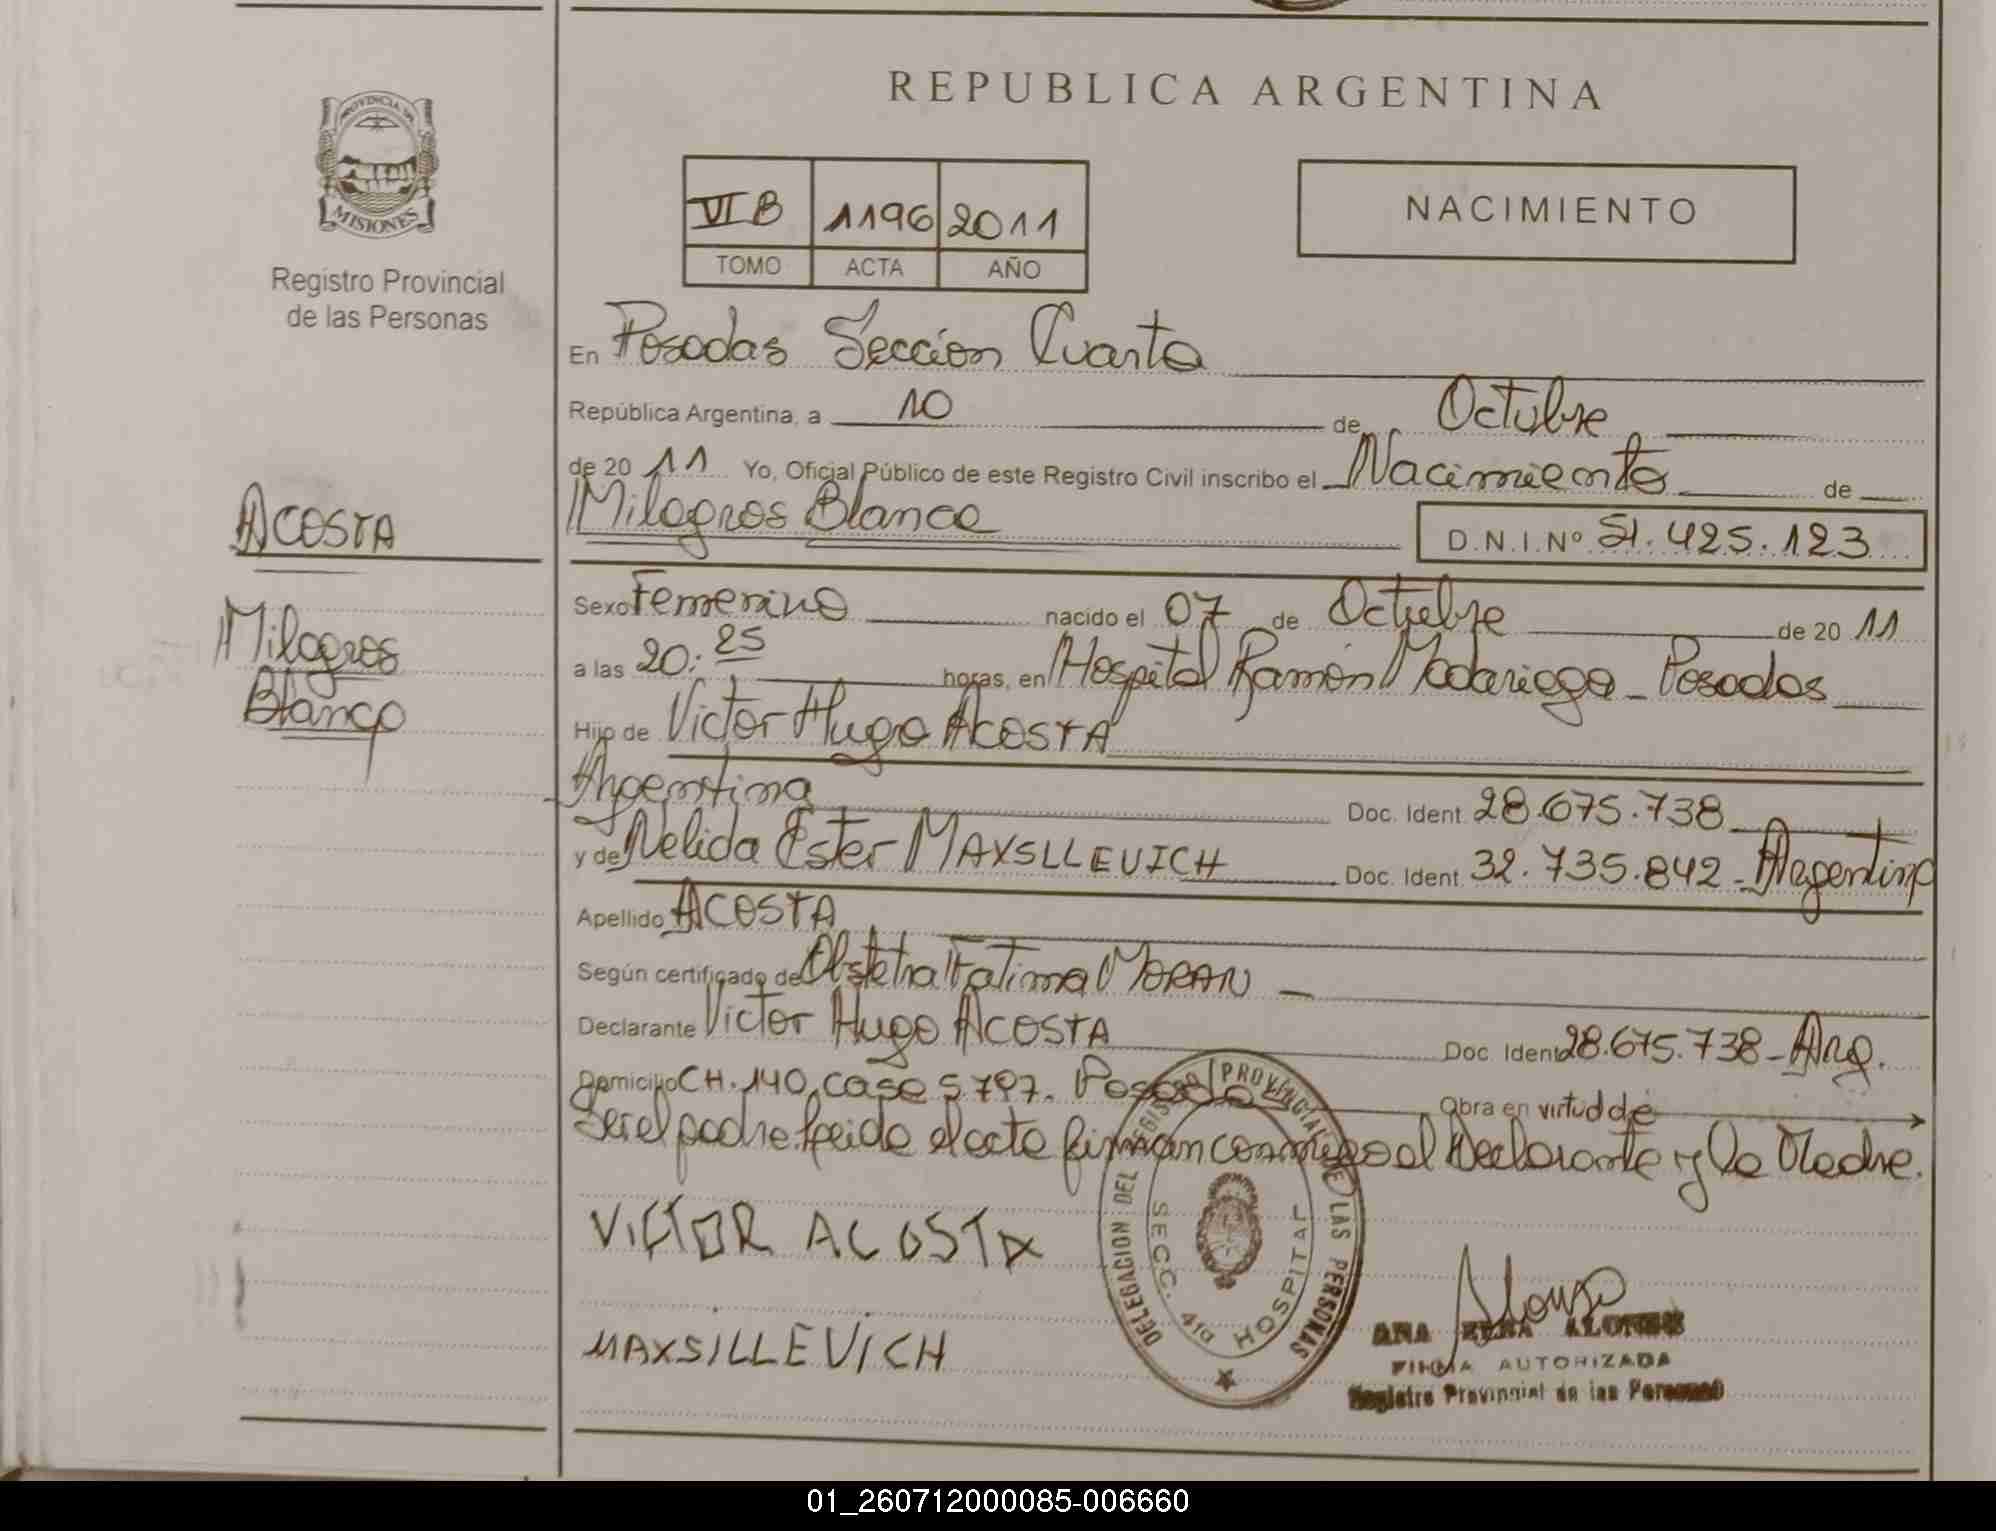 REPUBLICA ARGENTINA
PROVINCIA DE
MISIONES
Registro Provincial
de las Personas
VI B 1196 2011
TOMO ACTA AÑO
NACIMIENTO
En Posadas Sección Cuarta
República Argentina, a 10 de Octubre
de 20 11 Yo, Oficial Público de este Registro Civil inscribo el Nacimiento de
Milagros Blanca
D.N.I.Nº 51.425.123
ACOSTA
Milagros
Blanca
Sexo Femenino nacido el 07 de Octubre de 20 11
a las 20:25 horas, en Hospital Ramón Madariaga - Posadas
Hijo de Victor Hugo ACOSTA
Argentina Doc. Ident. 28.675.738
y de Nelida Ester MAXSLLEVICH Doc. Ident. 32.735.842 - Argentina
Apellido ACOSTA
Según certificado de Obstetra Fatima MORAN
Declarante Victor Hugo ACOSTA Doc. Ident 28.675.738 - Arg.
Domicilio CH. 140, casa 5797. Posadas Obra en virtud de
ser el padre. Leida el acta firman conmigo el Declarante y la Madre.
VICTOR ACOSTA
MAXSILLEVICH
DELEGACION DEL REGISTRO PROVINCIAL DE LAS PERSONAS
SECC. 4ta HOSPITAL
Alonso
ANA ALONSO
FIRMA AUTORIZADA
Registro Provincial de las Personas
01_260712000085-006660